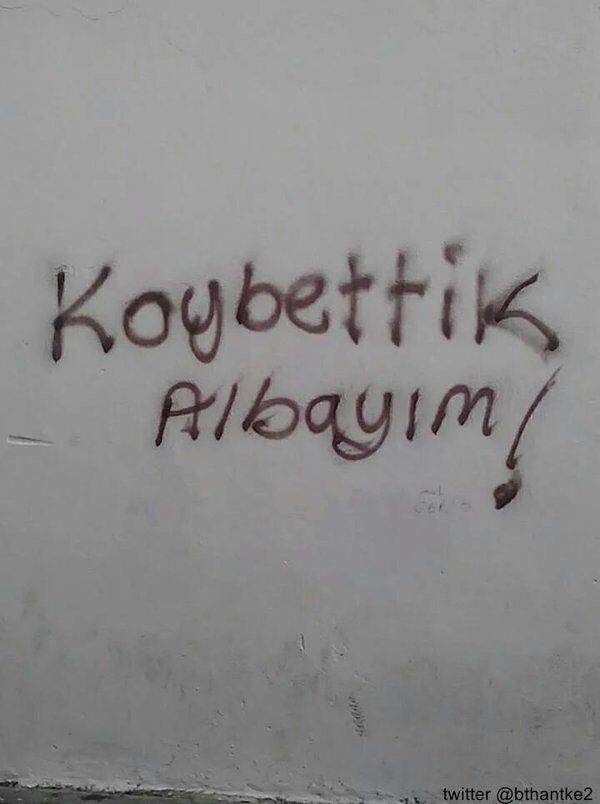 Kaybettik
Albayım!
twitter @bthantke2